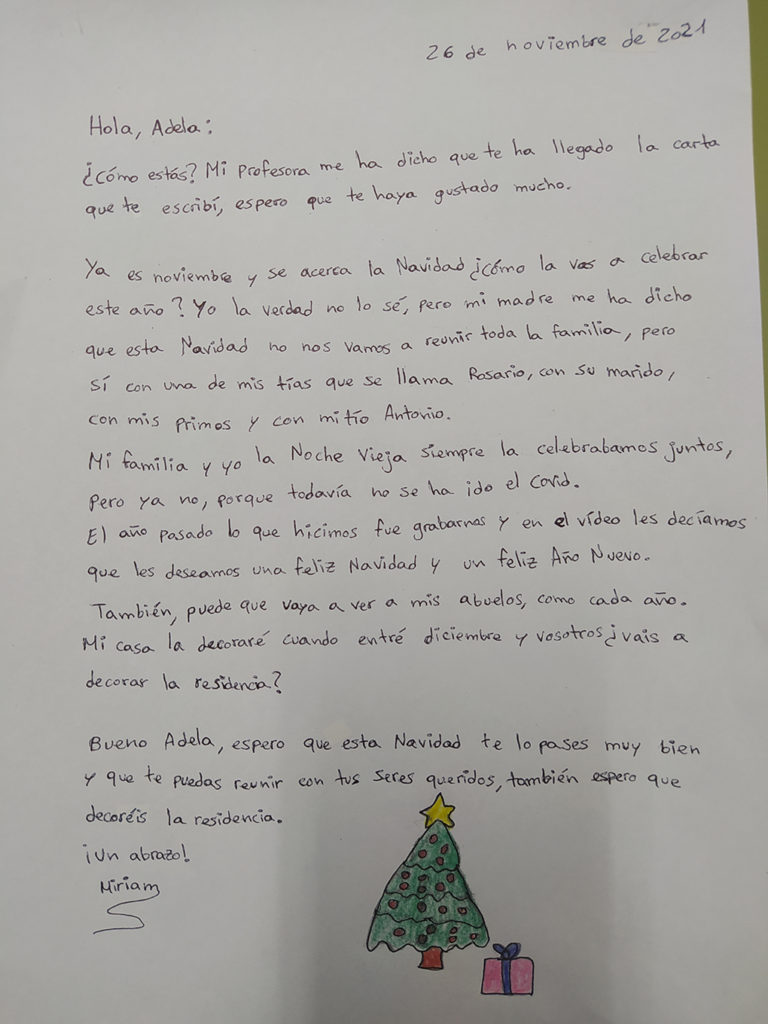 26 de noviembre de 2021
Hola, Adela:
¿Cómo estás? Mi profesora me ha dicho que te ha llegado la carta
que te escribí, espero que te haya gustado mucho.
Ya es noviembre y se acerca la Navidad ¿cómo la vas a celebrar
este año? Yo la verdad no lo sé, pero mi madre me ha dicho
que esta Navidad no nos vamos a reunir toda la familia, pero
sí con una de mis tías que se llama Rosario, con su marido,
con mis primos y con mi tío Antonio.
Mi familia y yo la Noche Vieja siempre la celebrabamos juntos,
pero ya no, porque todavía no se ha ido el Covid.
El año pasado lo que hicimos fue grabarnos y en el vídeo les decíamos
que les deseamos una feliz Navidad y un feliz Año Nuevo.
También, puede que vaya a ver a mis abuelos, como cada año.
Mi casa la decoraré cuando entré diciembre y vosotros ¿vais a
decorar la residencia?
Bueno Adela, espero que esta Navidad te lo pases muy bien
y que te puedas reunir con tus seres queridos, también espero que
decoréis la residencia.
¡Un abrazo!
Miriam